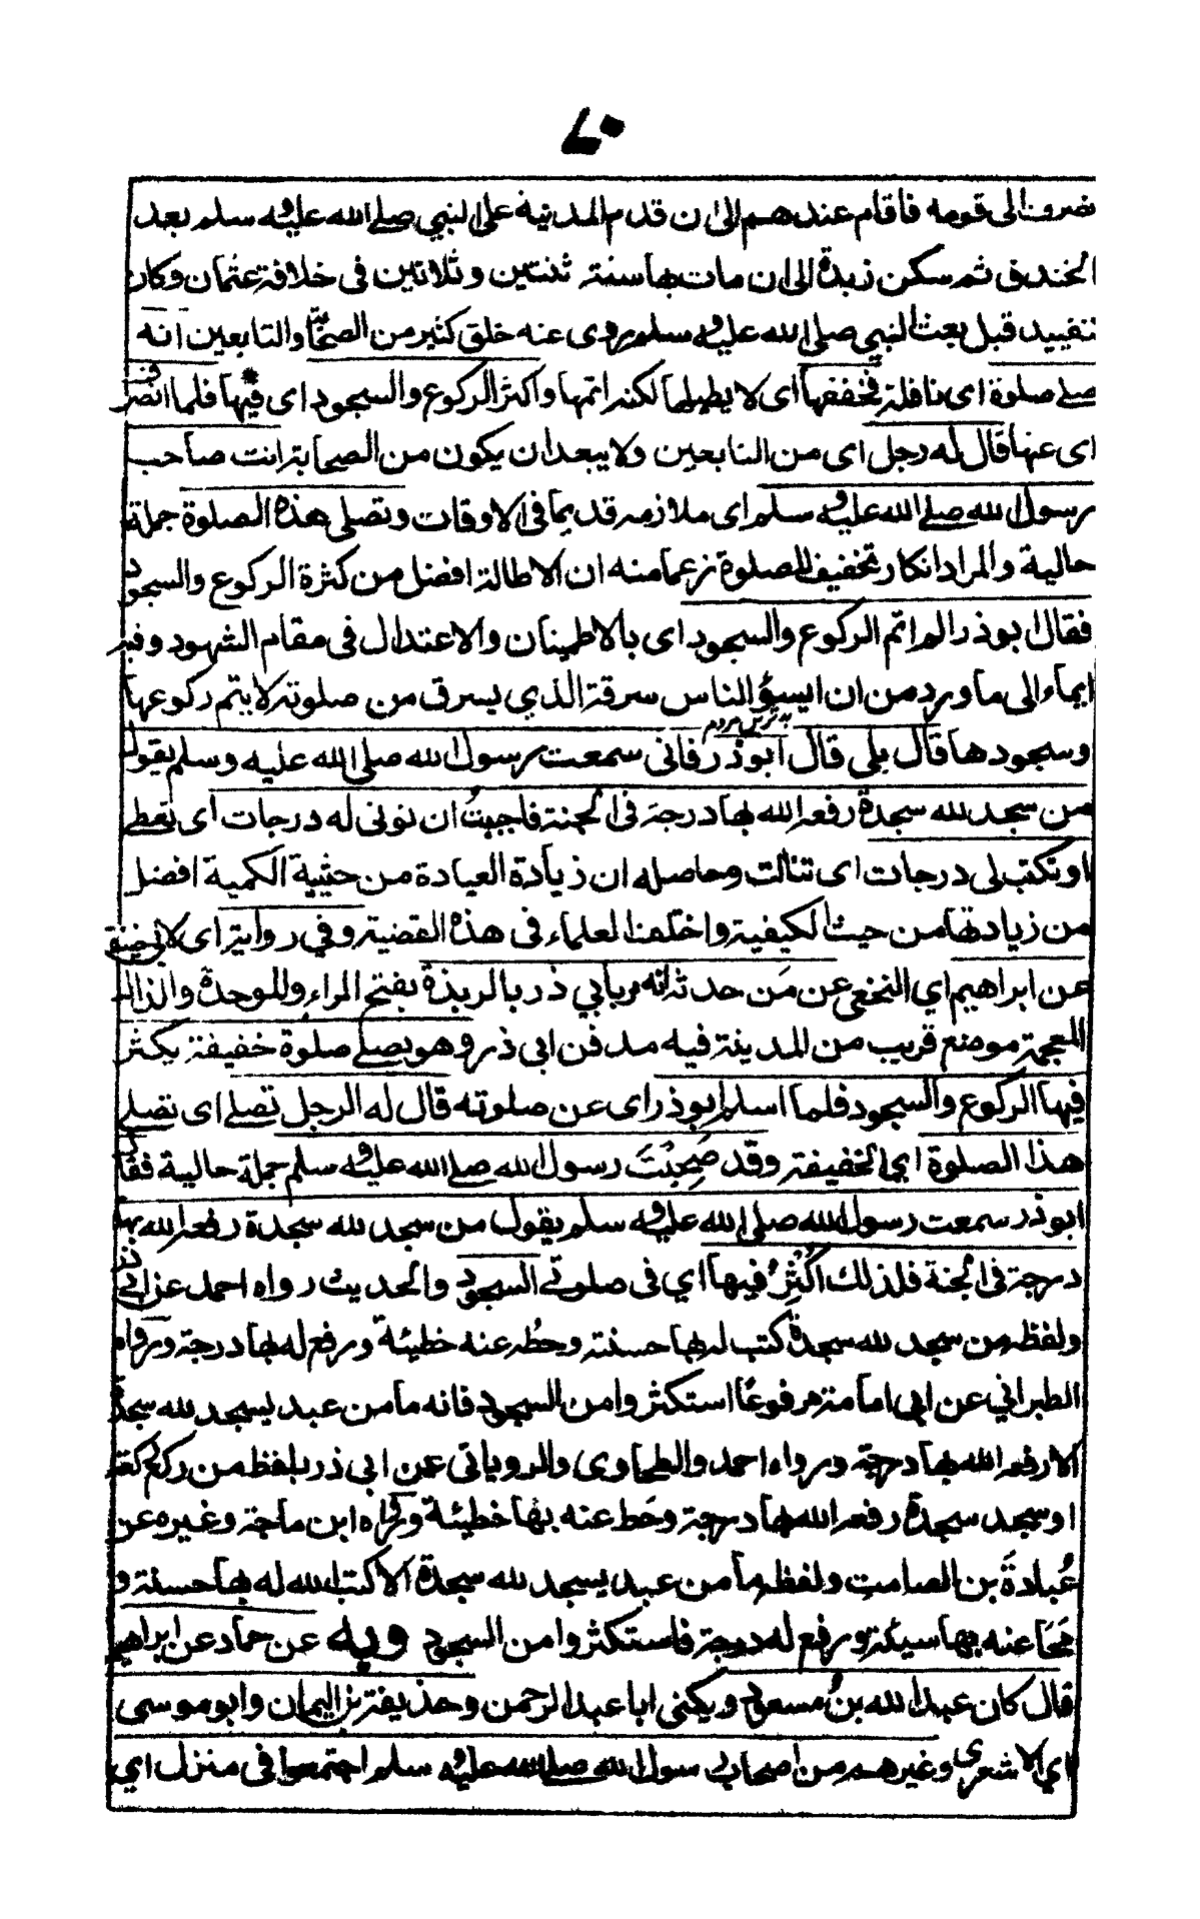 انصرف الى قومه فاقام عندهم الى ان قدم المدينة على النبي صلى الله عليه وسلم بعد
الخندق ثم سكن ربذة الى ان مات بها سنة ثنتين وثلاثين فى خلافة عثمان وكان
يتعبد قبل بعث النبي صلى الله عليه وسلم روى عنه خلق كثير من الصحابة والتابعين انه
صلى صلوة اى نافلة فخففها اى لا يطيلها لكنه اتمها واكثر الركوع والسجود اى فيها فلما انصرف
اى عنها قال له رجل اى من التابعين ولا يبعد ان يكون من الصحابة انت صاحب
رسول الله صلى الله عليه وسلم اى ملازمه قديما فى الاوقات وتصلى هذه الصلوة جملة
حالية والمراد انكار تخفيف الصلوة زعما منه ان الاطالة افضل من كثرة الركوع والسجود
فقال ابو ذر الم اتم الركوع والسجود اى بالاطمينان والاعتدال فى مقام الشهود وفيه
ايماء الى ما ورد من ان ايسؤ الناس سرقة الذي يسرق من صلوته لا يتم ركوعها
بدترين مردم
وسجودها قال بلى قال ابو ذر فانى سمعت رسول الله صلى الله عليه وسلم يقول
من سجد لله سجدة رفعه الله بها درجة فى الجنة فاجبتُ ان نوتى له درجات اى تعطى
او تكتب لى درجات اى تنالت وحاصله ان زيادة العبادة من حيثية الكمية افضل
من زيادتها من حيث الكيفية واختلف العلماء فى هذه القضية وفي رواية اى لابى حنيفة
عن ابراهيم اي النخعى عن مَن حدثه انه مر بابي ذر بالربذة بفتح الراء والموحدة والذال
المعجمة موضع قريب من المدينة فيه مدفن ابى ذر وهو يصلى صلوة خفيفة يكثر
فيها الركوع والسجود فلما اسلم ابو ذر اى عن صلوته قال له الرجل تصلى اى تصلى
هذا الصلوة اي الخفيفة وقد صَحِبْتَ رسول الله صلى الله عليه وسلم جملة حالية فقال
ابو ذر سمعت رسول الله صلى الله عليه وسلم يقول من سجد لله سجدة رفعه الله بها
درجة فى الجنة فلذلك اُكْثِرُ فيها اي فى صلوتى السجود والحديث رواه احمد عن ابى ذر
ولفظه من سجد لله سجدة كتب له بها حسنة وحُط عنه خطيئة ورفع له بها درجة ورواه
الطبراني عن ابى امامة مرفوعًا استكثروا من السجود فانه ما من عبد يسجد لله سجدة
الا رفعه الله بها درجة ورواه احمد والطحاوى والرويانى عن ابى ذر بلفظ من ركع ركعة
او سجد سجدة رفعه الله بها درجة وحَط عنه بها خطيئة ورواه ابن ماجة وغيره عن
عُبادةَ بن الصامت ولفظه ما من عبد يسجد لله سجدة الا كتب الله له بها حسنة و
مَحَا عنه بها سيئة ورفع له درجة فاستكثروا من السجود وبه عن حماد عن ابراهيم
قال كان عبد الله بنُ مسعود ويكنى ابا عبد الرحمن وحذيفة بن اليمان وابو موسى
اي الاشعرى وغيرهم من اصحاب رسول الله صلى الله عليه وسلم اجتمعوا فى منزل اي